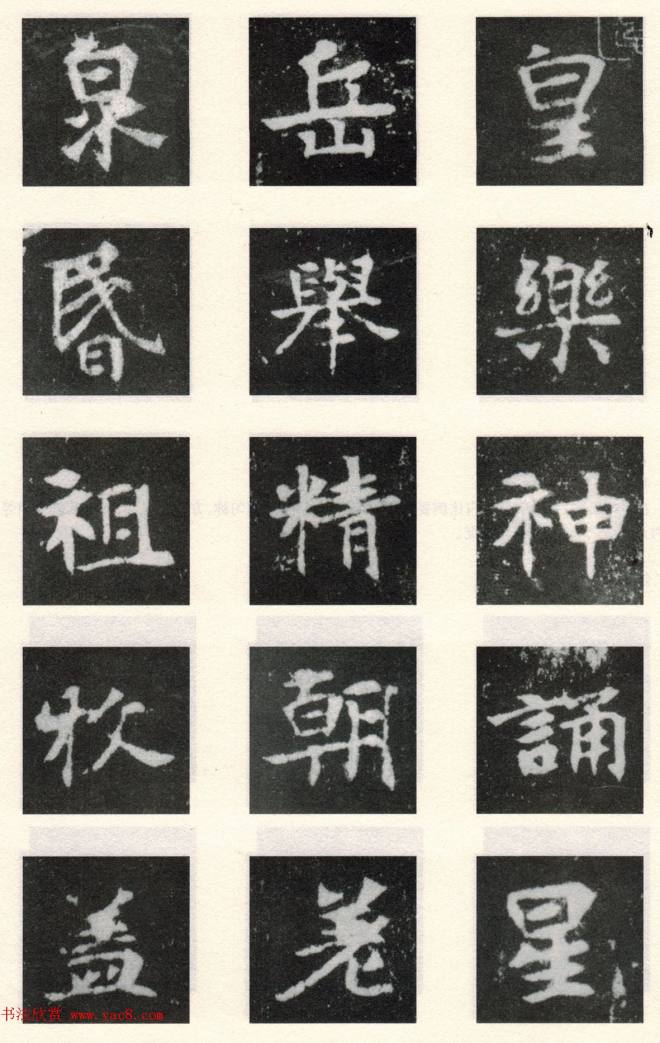 皇樂神誦星
岳舉精朝羌
泉昬祖牧盖
书法欣赏 www.yac8.com